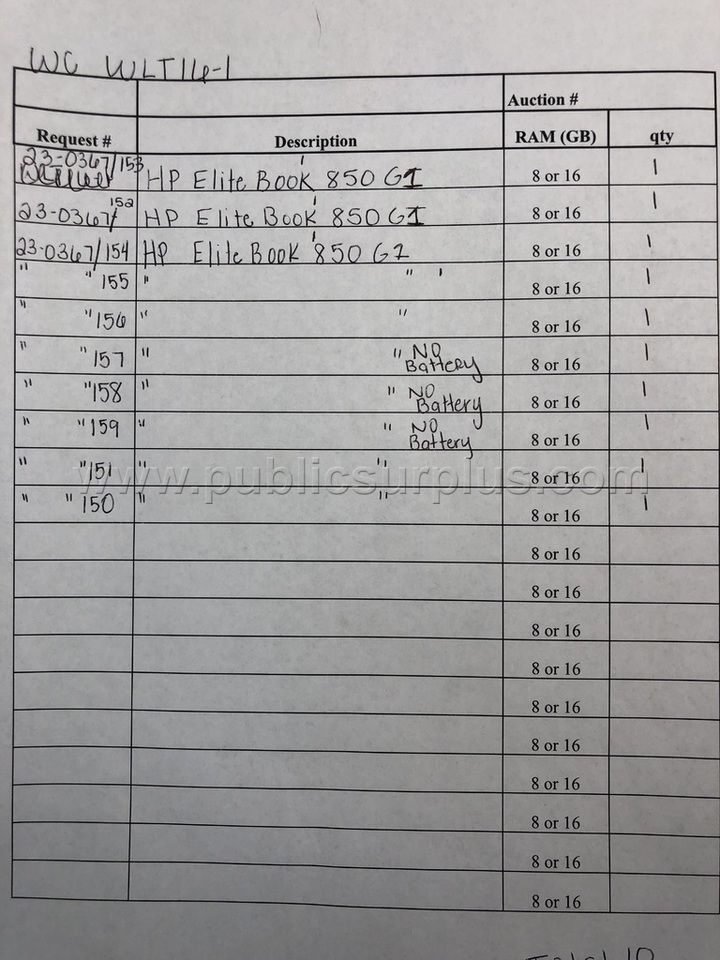 WC WLT14-1
Auction #
Request # Description RAM (GB) qty
23-0367/153 HP Elite Book 850 G1 8 or 16 1
23-0367/152 HP Elite Book 850 G1 8 or 16 1
23-0367/154 HP Elite Book 850 G1 8 or 16 1
" " 155 " " 8 or 16 1
" " 156 " " 8 or 16 1
" " 157 " " NO Battery 8 or 16 1
" " 158 " " NO Battery 8 or 16 1
" " 159 " " NO Battery 8 or 16 1
" " 151 " " 8 or 16 1
www.publicsurplus.com
" " 150 " " 8 or 16 1
8 or 16
8 or 16
8 or 16
8 or 16
8 or 16
8 or 16
8 or 16
8 or 16
8 or 16
8 or 16
Total 10